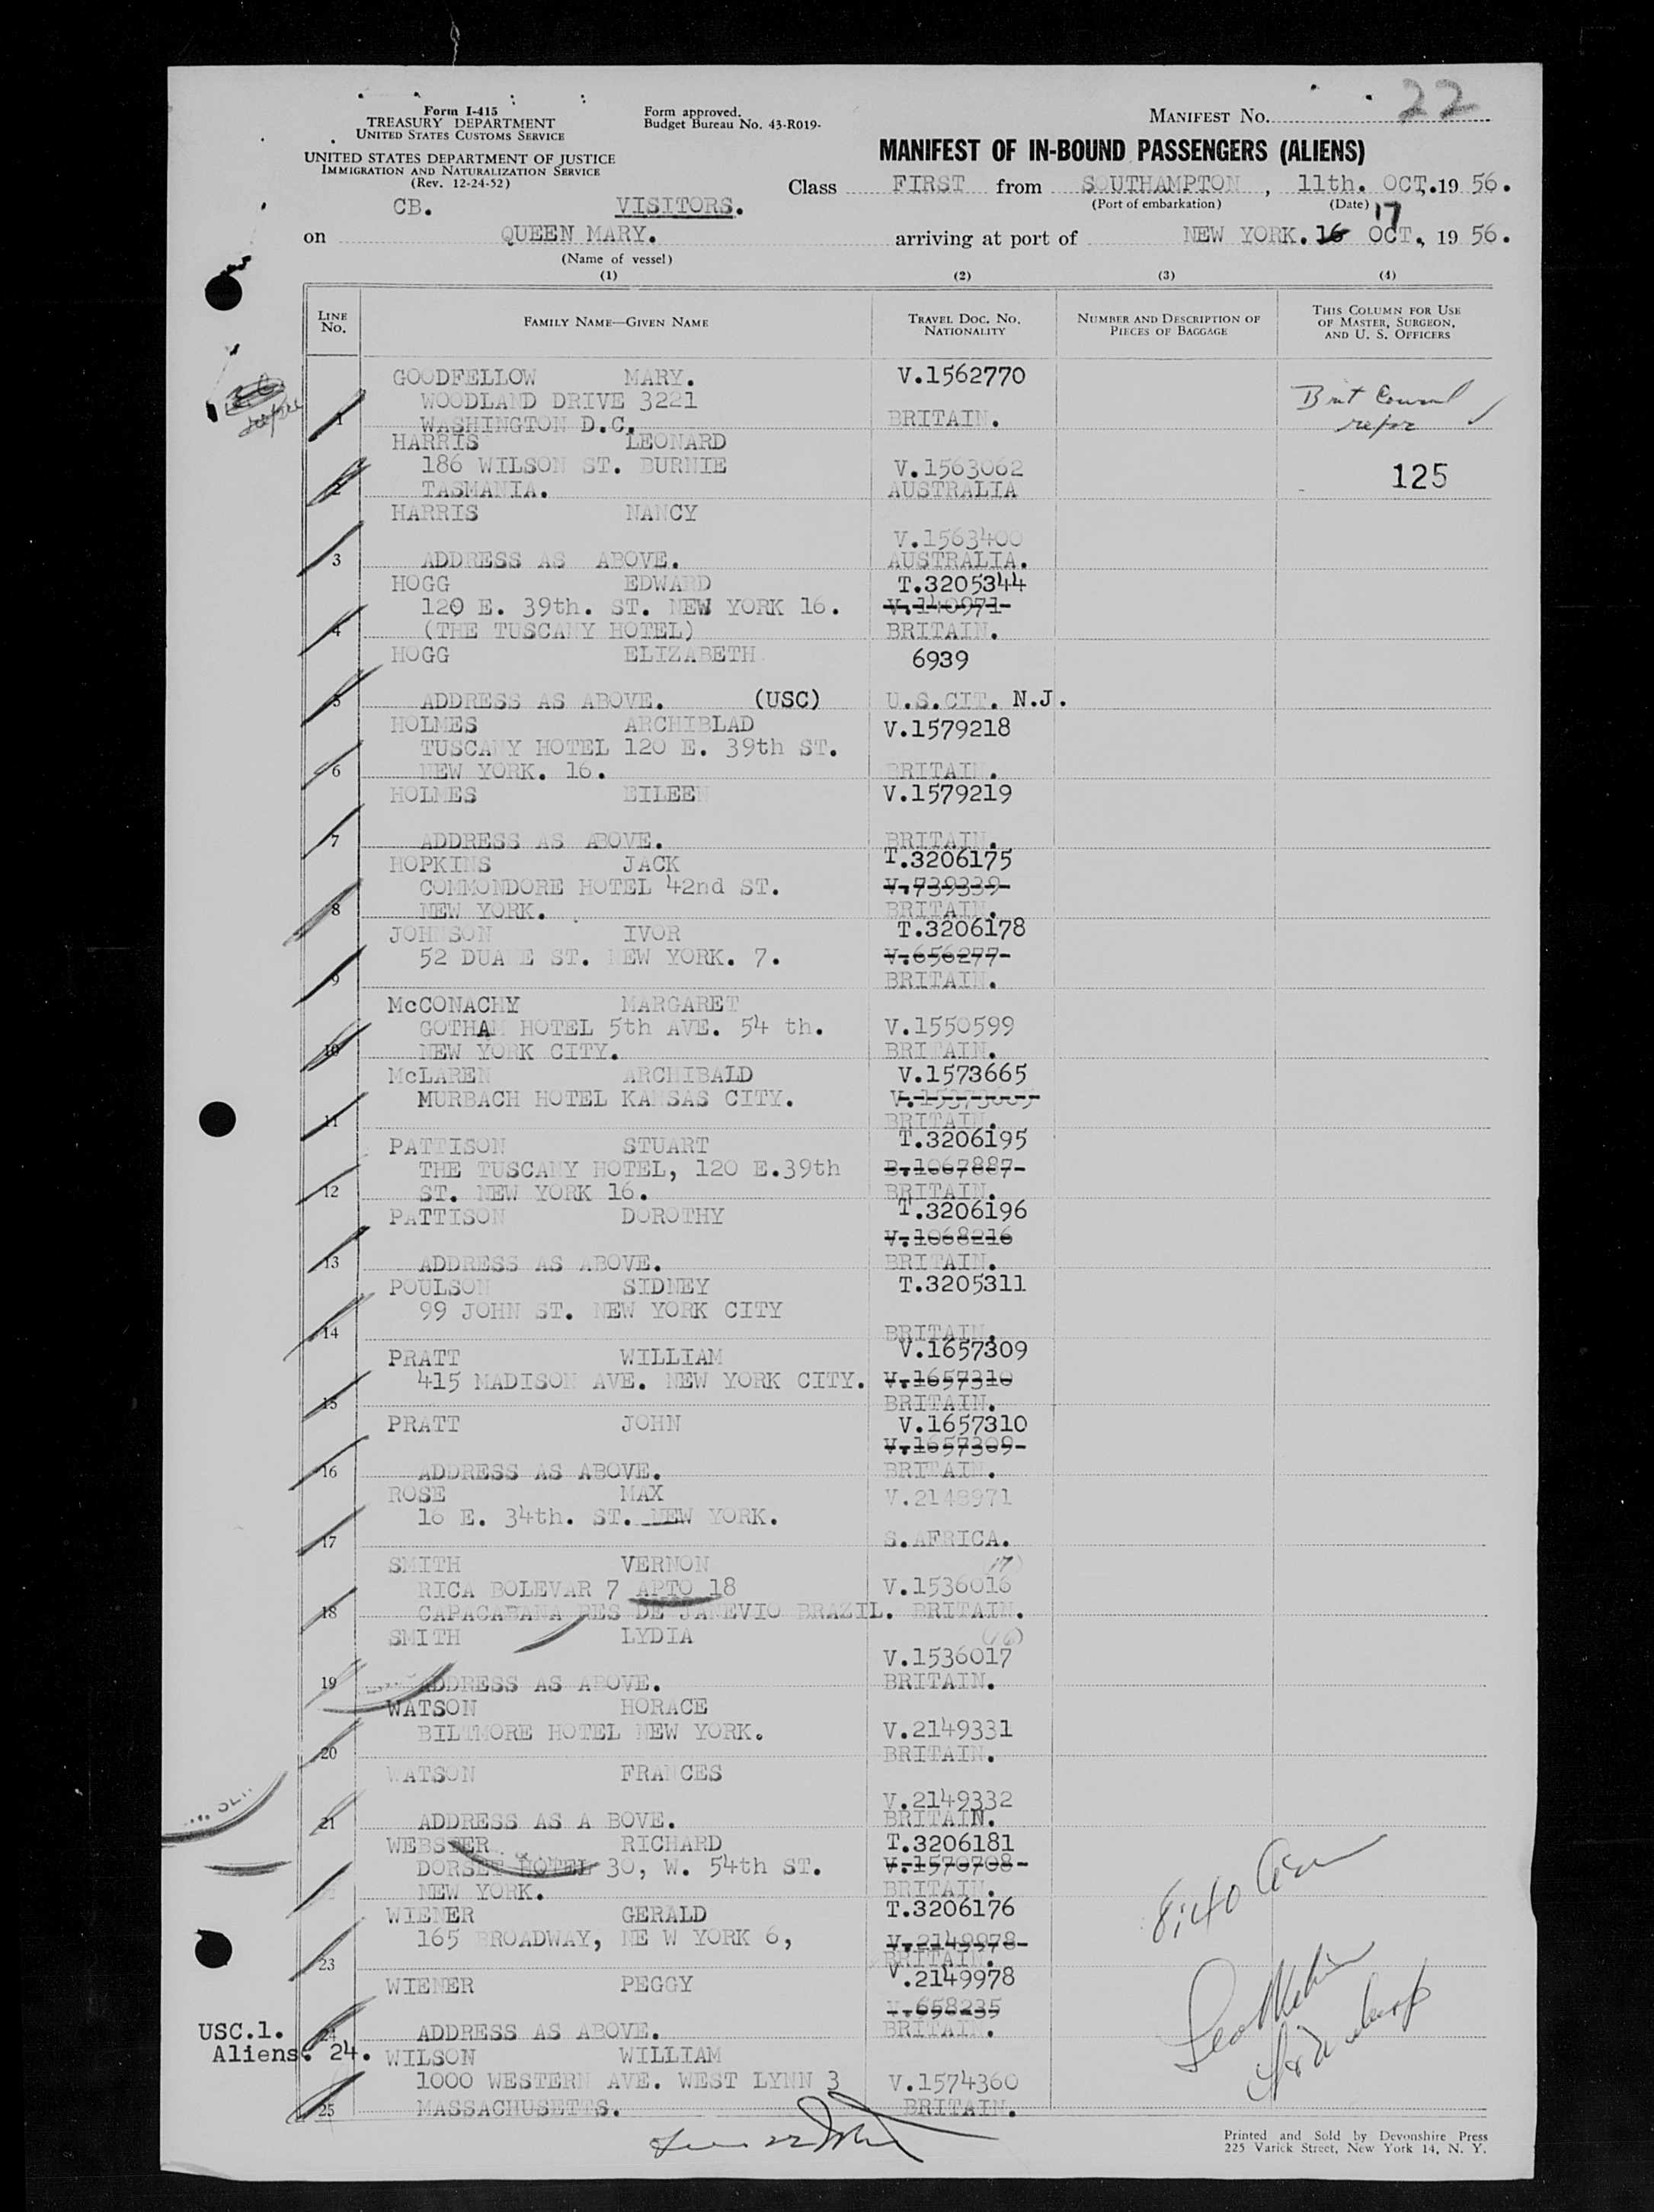 22
Form I-415
TREASURY DEPARTMENT
UNITED STATES CUSTOMS SERVICE
UNITED STATES DEPARTMENT OF JUSTICE
IMMIGRATION AND NATURALIZATION SERVICE
(Rev. 12-24-52)
Form approved.
Budget Bureau No. 43-R019.
MANIFEST No.
MANIFEST OF IN-BOUND PASSENGERS (ALIENS)
Class FIRST from SOUTHAMPTON, 11th. OCT. 19 56.
(Port of embarkation) (Date)
CB. VISITORS.
17
on QUEEN MARY. arriving at port of NEW YORK. 16 OCT, 19 56.
(Name of vessel)
(1) (2) (3) (4)
LINE No. FAMILY NAME—GIVEN NAME TRAVEL DOC. NO. NATIONALITY NUMBER AND DESCRIPTION OF PIECES OF BAGGAGE THIS COLUMN FOR USE OF MASTER, SURGEON, AND U. S. OFFICERS
GOODFELLOW MARY. V.1562770
WOODLAND DRIVE 3221
1 WASHINGTON D.C. BRITAIN.
HARRIS LEONARD
186 WILSON ST. BURNIE V.1563062 125
2 TASMANIA. AUSTRALIA
HARRIS NANCY
V.1563400
3 ADDRESS AS ABOVE. AUSTRALIA.
HOGG EDWARD T.3205344
120 E. 39th. ST. NEW YORK 16. V.140971
4 (THE TUSCANY HOTEL) BRITAIN.
HOGG ELIZABETH 6939
5 ADDRESS AS ABOVE. (USC) U.S.CIT. N.J.
HOLMES ARCHIBLAD V.1579218
TUSCANY HOTEL 120 E. 39th ST.
6 NEW YORK. 16. BRITAIN.
HOLMES EILEEN V.1579219
7 ADDRESS AS ABOVE. BRITAIN.
HOPKINS JACK T.3206175
COMMONDORE HOTEL 42nd ST. V.739339
8 NEW YORK. BRITAIN.
JOHNSON IVOR T.3206178
52 DUANE ST. NEW YORK. 7. V.656277
9 BRITAIN.
McCONACHY MARGARET
GOTHAM HOTEL 5th AVE. 54 th. V.1550599
10 NEW YORK CITY. BRITAIN.
McLAREN ARCHIBALD V.1573665
MURBACH HOTEL KANSAS CITY.
11 BRITAIN.
PATTISON STUART T.3206195
THE TUSCANY HOTEL, 120 E.39th B.1067887
12 ST. NEW YORK 16. BRITAIN.
PATTISON DOROTHY T.3206196
V.1068216
13 ADDRESS AS ABOVE. BRITAIN.
POULSON SIDNEY T.3205311
99 JOHN ST. NEW YORK CITY
14 BRITAIN.
PRATT WILLIAM V.1657309
415 MADISON AVE. NEW YORK CITY. V.1657310
15 BRITAIN.
PRATT JOHN V.1657310
V.1657309
16 ADDRESS AS ABOVE. BRITAIN.
ROSE MAX V.2148971
16 E. 34th. ST. NEW YORK.
17 S.AFRICA.
SMITH VERNON (17)
RICA BOLEVAR 7 APTO 18 V.1536016
18 CAPACABANA RES DE JANEVIO BRAZIL. BRITAIN.
SMITH LYDIA (16)
V.1536017
19 ADDRESS AS ABOVE. BRITAIN.
WATSON HORACE
BILTMORE HOTEL NEW YORK. V.2149331
20 BRITAIN.
WATSON FRANCES
V.2149332
21 ADDRESS AS A BOVE. BRITAIN.
WEBSTER RICHARD T.3206181
DORSET HOTEL 30, W. 54th ST. V.1570708
NEW YORK. BRITAIN.
WIENER GERALD T.3206176
165 BROADWAY, NE W YORK 6, V.2149978
23 BRITAIN.
WIENER PEGGY V.2149978
V.658235
USC.1. 24 ADDRESS AS ABOVE. BRITAIN.
Aliens. 24. WILSON WILLIAM
1000 WESTERN AVE. WEST LYNN 3 V.1574360
25 MASSACHUSETTS. BRITAIN.
8:40
Printed and Sold by Devonshire Press
225 Varick Street, New York 14, N. Y.